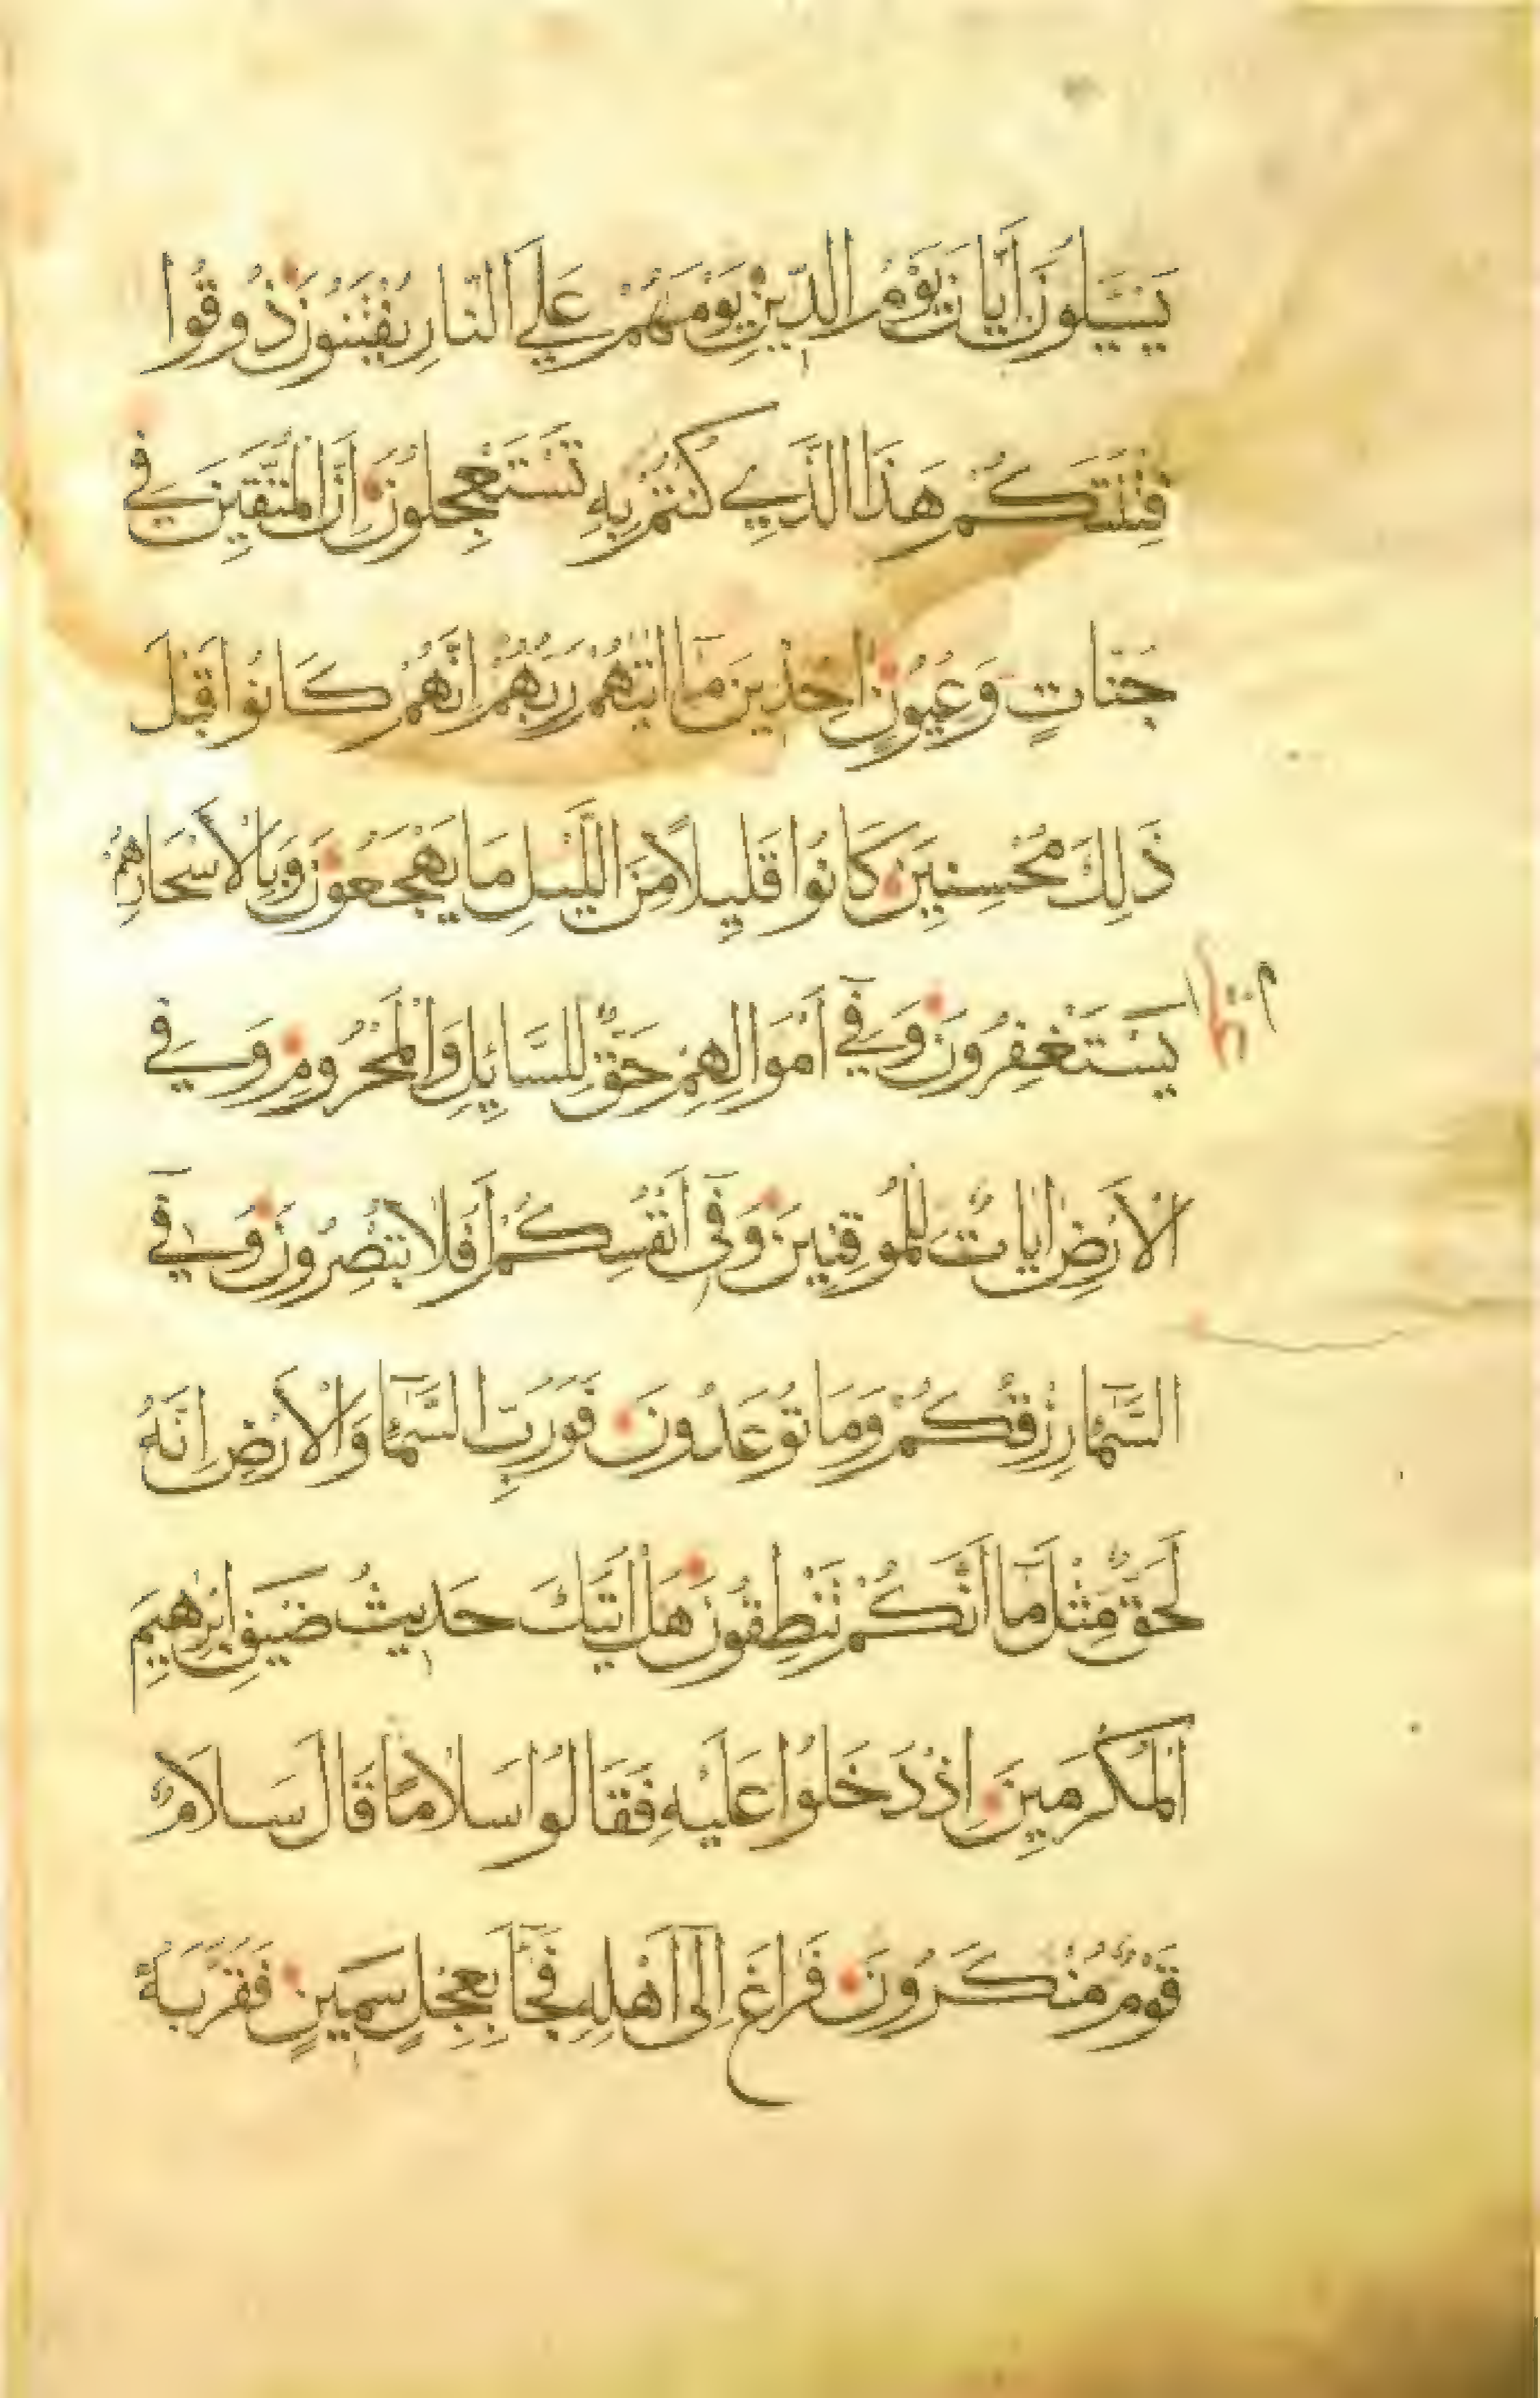 يَسْـَٔلُونَ اَيَّانَ يَوْمُ الدِّينِ يَوْمَ هُمْ عَلَي النَّارِ يُفْتَنُونَ ذُوقُوا
فِتْنَتَكُمْ هَذَا الَّذِي كُنْتُمْ بِهِ تَسْتَعْجِلُونَ اِنَّ الْمُتَّقِينَ فِي
جَنَّاتٍ وَعُيُونٍ اٰخِذِينَ مَا اٰتٰيهُمْ رَبُّهُمْ اِنَّهُمْ كَانُوا قَبْلَ
ذَلِكَ مُحْسِنِينَ كَانُوا قَلِيلًا مِنَ اللَّيْلِ مَا يَهْجَعُونَ وَبِالْاَسْحَارِ هُمْ
يَسْتَغْفِرُونَ وَفِي اَمْوَالِهِمْ حَقٌّ لِلسَّايِٕلِ وَالْمَحْرُومِ وَفِي
الْاَرْضِ اٰيَاتٌ لِلْمُوقِنِينَ وَفِي اَنْفُسِكُمْ اَفَلَا تُبْصِرُونَ وَفِي
السَّمَآءِ رِزْقُكُمْ وَمَا تُوعَدُونَ فَوَرَبِّ السَّمَآءِ وَالْاَرْضِ اِنَّهُ
لَحَقٌّ مِثْلَ مَا اَنَّكُمْ تَنْطِقُونَ هَلْ اَتٰيكَ حَدِيثُ ضَيْفِ اِبْرٰهِيمَ
الْمُكْرَمِينَ اِذْ دَخَلُوا عَلَيْهِ فَقَالُوا سَلَامًا قَالَ سَلَامٌ
قَوْمٌ مُنْكَرُونَ فَرَاغَ اِلَى اَهْلِهِ فَجَآءَ بِعِجْلٍ سَمِينٍ فَقَرَّبَهُ